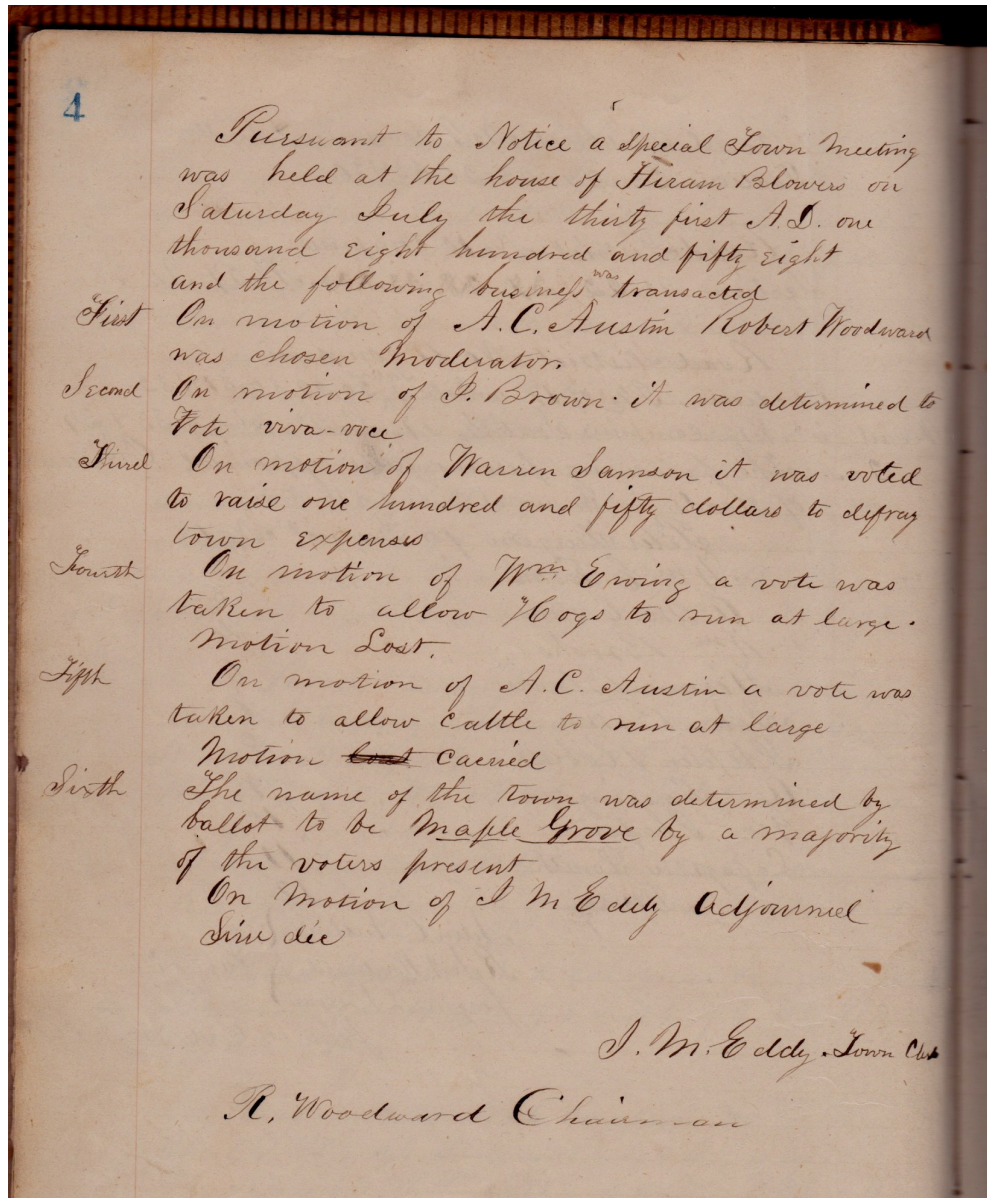 4
Pursuant to Notice a special Town Meeting
was held at the house of Hiram Blowers on
Saturday July the thirty first A.D. one
thousand eight hundred and fifty eight
and the following business was transacted
First On motion of A.C. Austin Robert Woodward
was chosen Moderator.
Second On motion of I. Brown. it was determined to
Vote viva-voce
Third On motion of Warren Samson it was voted
to raise one hundred and fifty dollars to defray
town expenses
Fourth On motion of Wm Ewing a vote was
taken to allow Hogs to run at large.
Motion Lost.
Fifth On motion of A.C. Austin a vote was
taken to allow cattle to run at large
Motion lost carried
Sixth The name of the town was determined by
ballot to be Maple Grove by a majority
of the voters present
On Motion of I M Eddy Adjourned
Sine die
I. M. Eddy. Town Clerk
R. Woodward Chairman